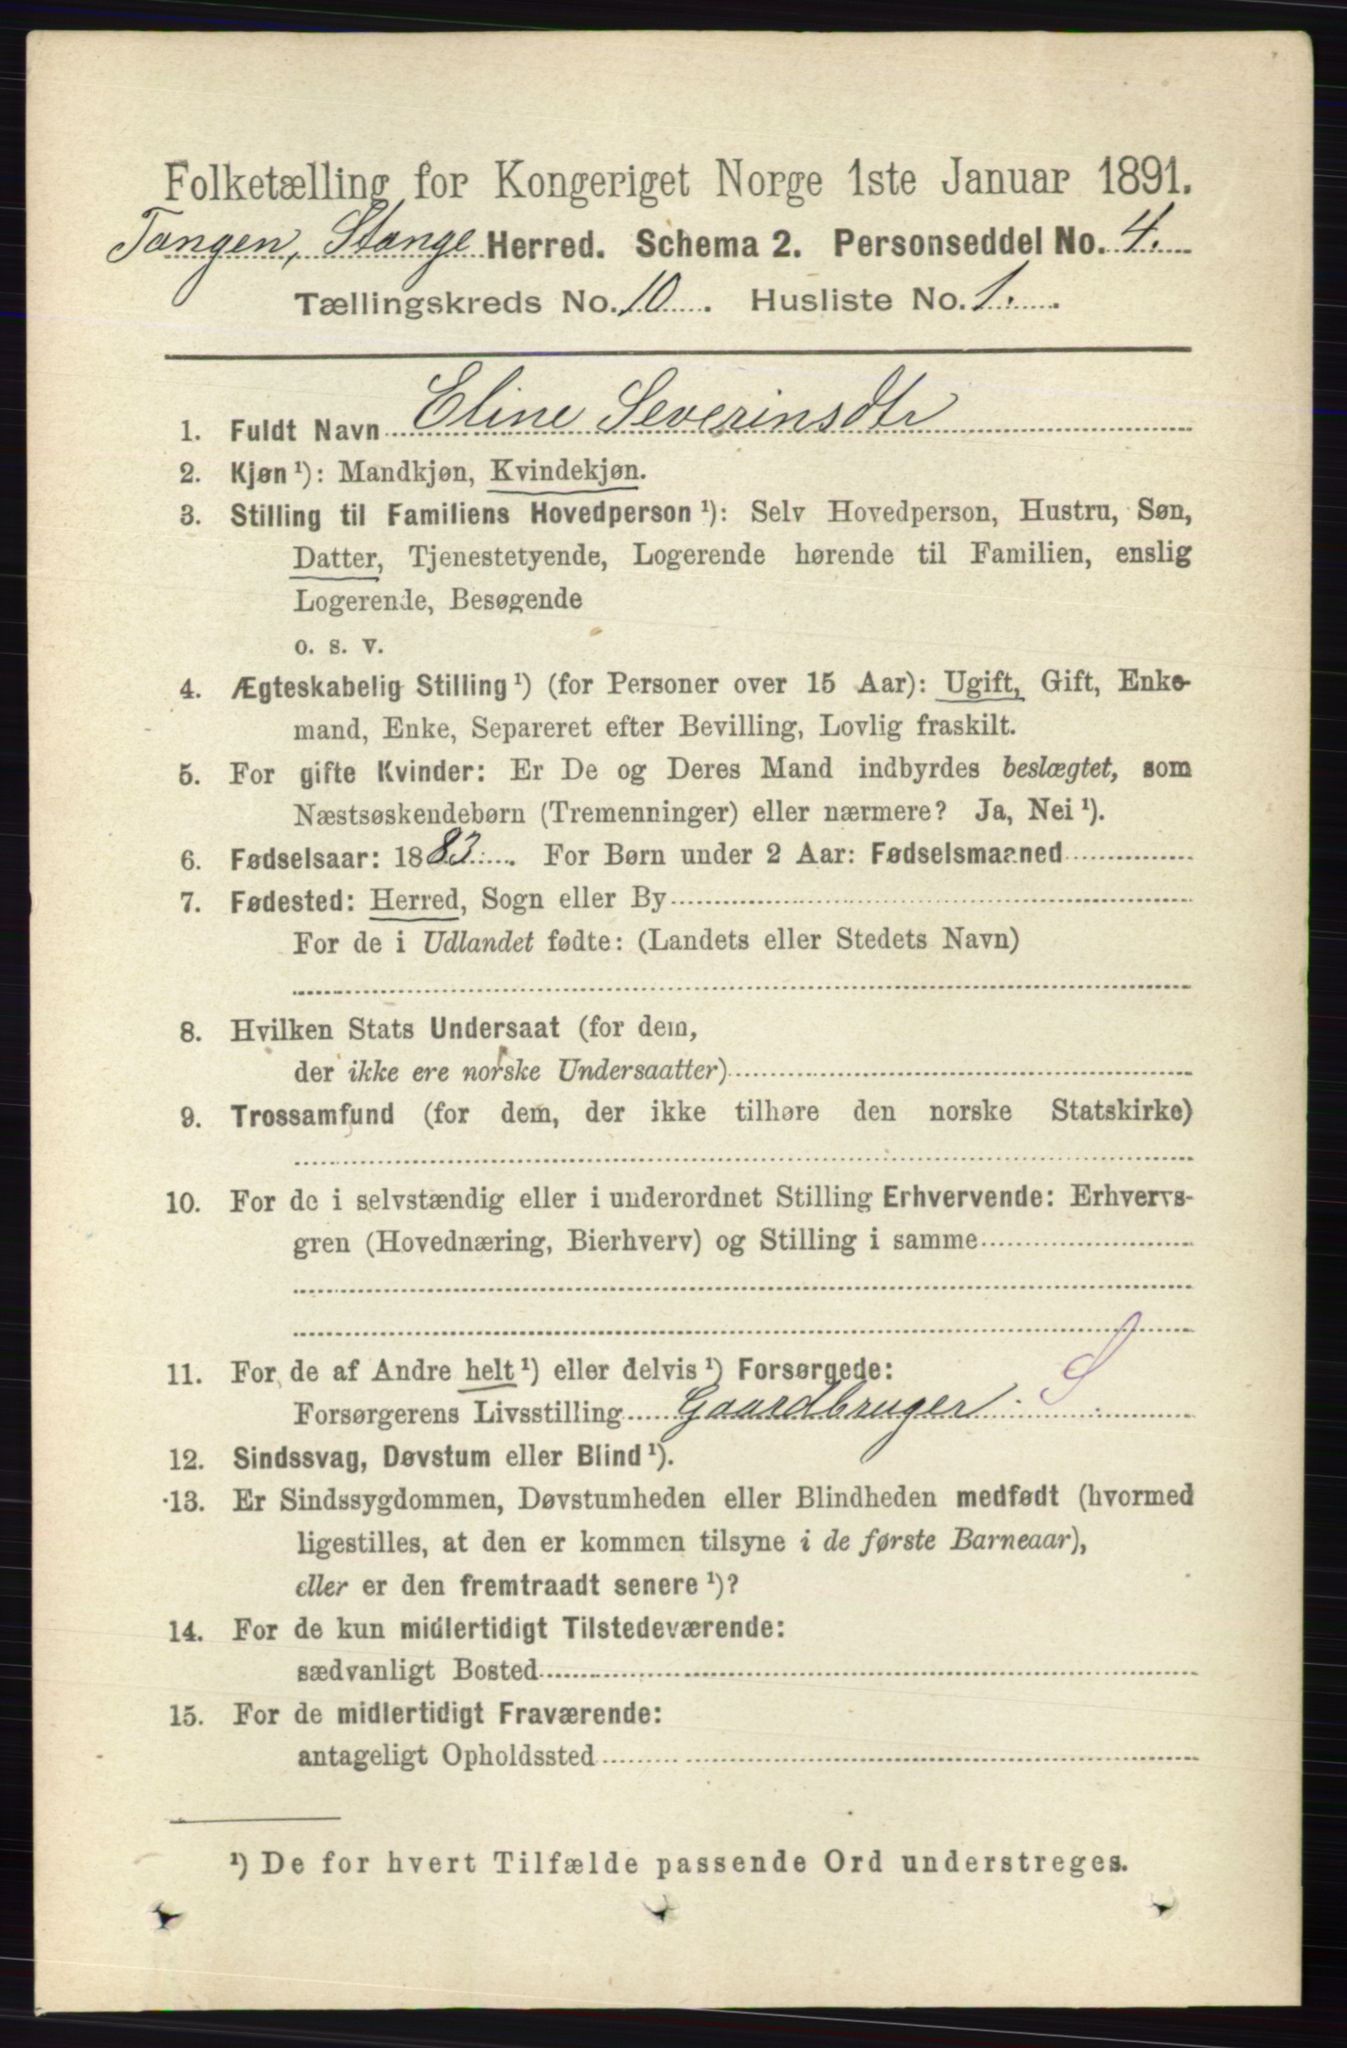 Folketælling for Kongeriget Norge 1ste Januar 1891.
Tangen, Stange Herred. Schema 2. Personseddel No. 4.
Tællingskreds No. 10. Husliste No. 1.
1. Fuldt Navn Eline Severinsdtr
2. Kjøn ¹): Mandkjøn, Kvindekjøn.
3. Stilling til Familiens Hovedperson ¹): Selv Hovedperson, Hustru, Søn,
Datter, Tjenestetyende, Logerende hørende til Familien, enslig
Logerende, Besøgende
o. s. v.
4. Ægteskabelig Stilling ¹) (for Personer over 15 Aar): Ugift, Gift, Enke-
mand, Enke, Separeret efter Bevilling, Lovlig fraskilt.
5. For gifte Kvinder: Er De og Deres Mand indbyrdes beslægtet, som
Næstsøskendebørn (Tremenninger) eller nærmere? Ja, Nei ¹).
6. Fødselsaar: 1883. For Børn under 2 Aar: Fødselsmaaned
7. Fødested: Herred, Sogn eller By
For de i Udlandet fødte: (Landets eller Stedets Navn)
8. Hvilken Stats Undersaat (for dem,
der ikke ere norske Undersaatter)
9. Trossamfund (for dem, der ikke tilhøre den norske Statskirke)
10. For de i selvstændig eller i underordnet Stilling Erhvervende: Erhvervs-
gren (Hovednæring, Bierhverv) og Stilling i samme
11. For de af Andre helt ¹) eller delvis ¹) Forsørgede:
Forsørgerens Livsstilling Gaardbruger. S
12. Sindssvag, Døvstum eller Blind ¹).
13. Er Sindssygdommen, Døvstumheden eller Blindheden medfødt (hvormed
ligestilles, at den er kommen tilsyne i de første Barneaar),
eller er den fremtraadt senere ¹)?
14. For de kun midlertidigt Tilstedeværende:
sædvanligt Bosted
15. For de midlertidigt Fraværende:
antageligt Opholdssted
¹) De for hvert Tilfælde passende Ord understreges.